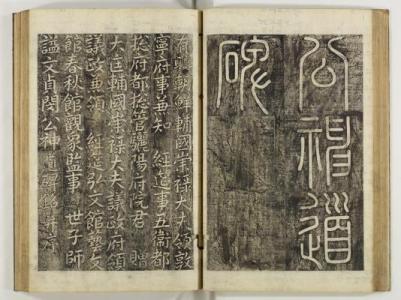 公神道
碑
有明朝鮮輔國崇祿大夫領敦
寧府事兼知 經筵事五衛都
捴府都捴管驪陽府院君 贈
大匡輔國崇祿大夫議政府領
議政兼領 經筵弘文館藝文
館春秋館觀象監事 世子師
謚文貞閔公神道碑銘并序